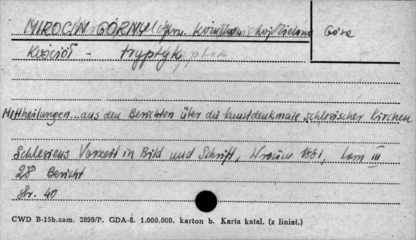 MIROCIN GÓRNY gm. Kożuchów woj. Zielona Góra
Kościół - tryptyk
Mittheilungen...aus den Berichten über die Kunstdenkmale schlesischer Kirchen
Schlesiens Vorzeit in Bild und Schrift, Wrocław 1881, tom III
28 Bericht
str. 40
CWD B-15b.zam. 2899/P. GDA-8. 1.000.000. karton b. Karta katal. (z liniat.)